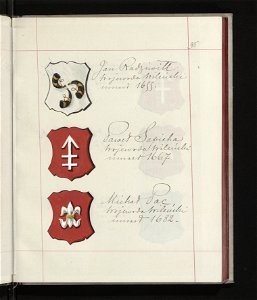 95
Jan Radziwiłł
Wojewoda Wileński
umarł 1655.
Paweł Sapieha
Wojewoda Wileński
umarł 1667.
Michał Pac
Wojewoda Wileński
umarł 1682.